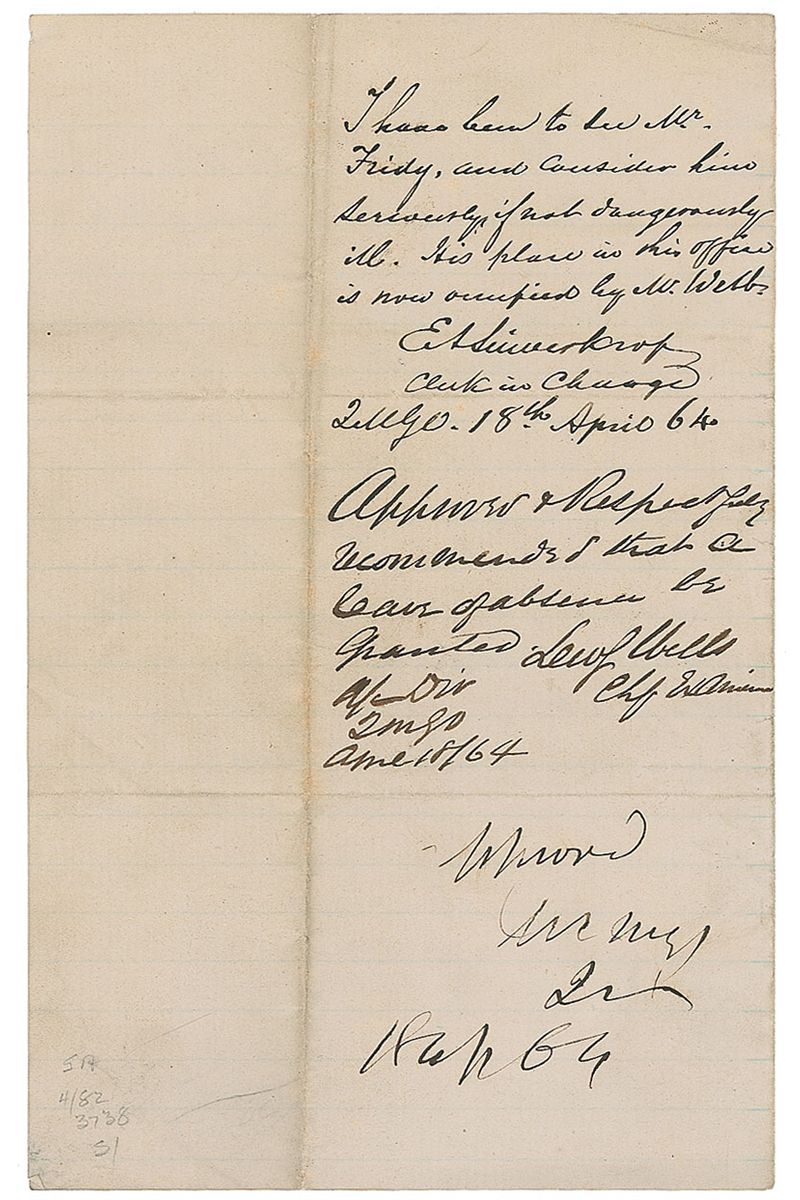 I have been to see Mr.
Fridy, and consider him
seriously, if not dangerously
ill. His place in this office
is now occupied by Mr. Webb.
Clerk in Charge
QMGO. 18th April 64
Approved & Respectfully
recommended that a
leave of absence be
granted
Wells
a/c Div
QMGO
April 18/64
Approved
18 Ap 64
4/82
3738